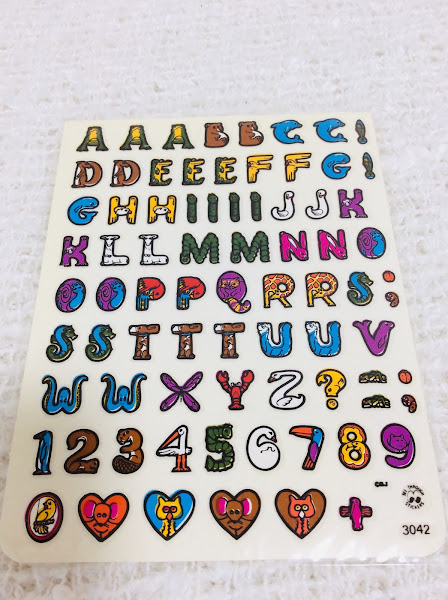 A A A B B C C !
D D E E E F F G !
G H H I I I I J J K
K L L M M N N O
O O P P Q R R S ;
S S T T T U U V
W W X Y Z ? - - ;
1 2 3 4 5 6 7 8 9
0 +
STICKERS
3042